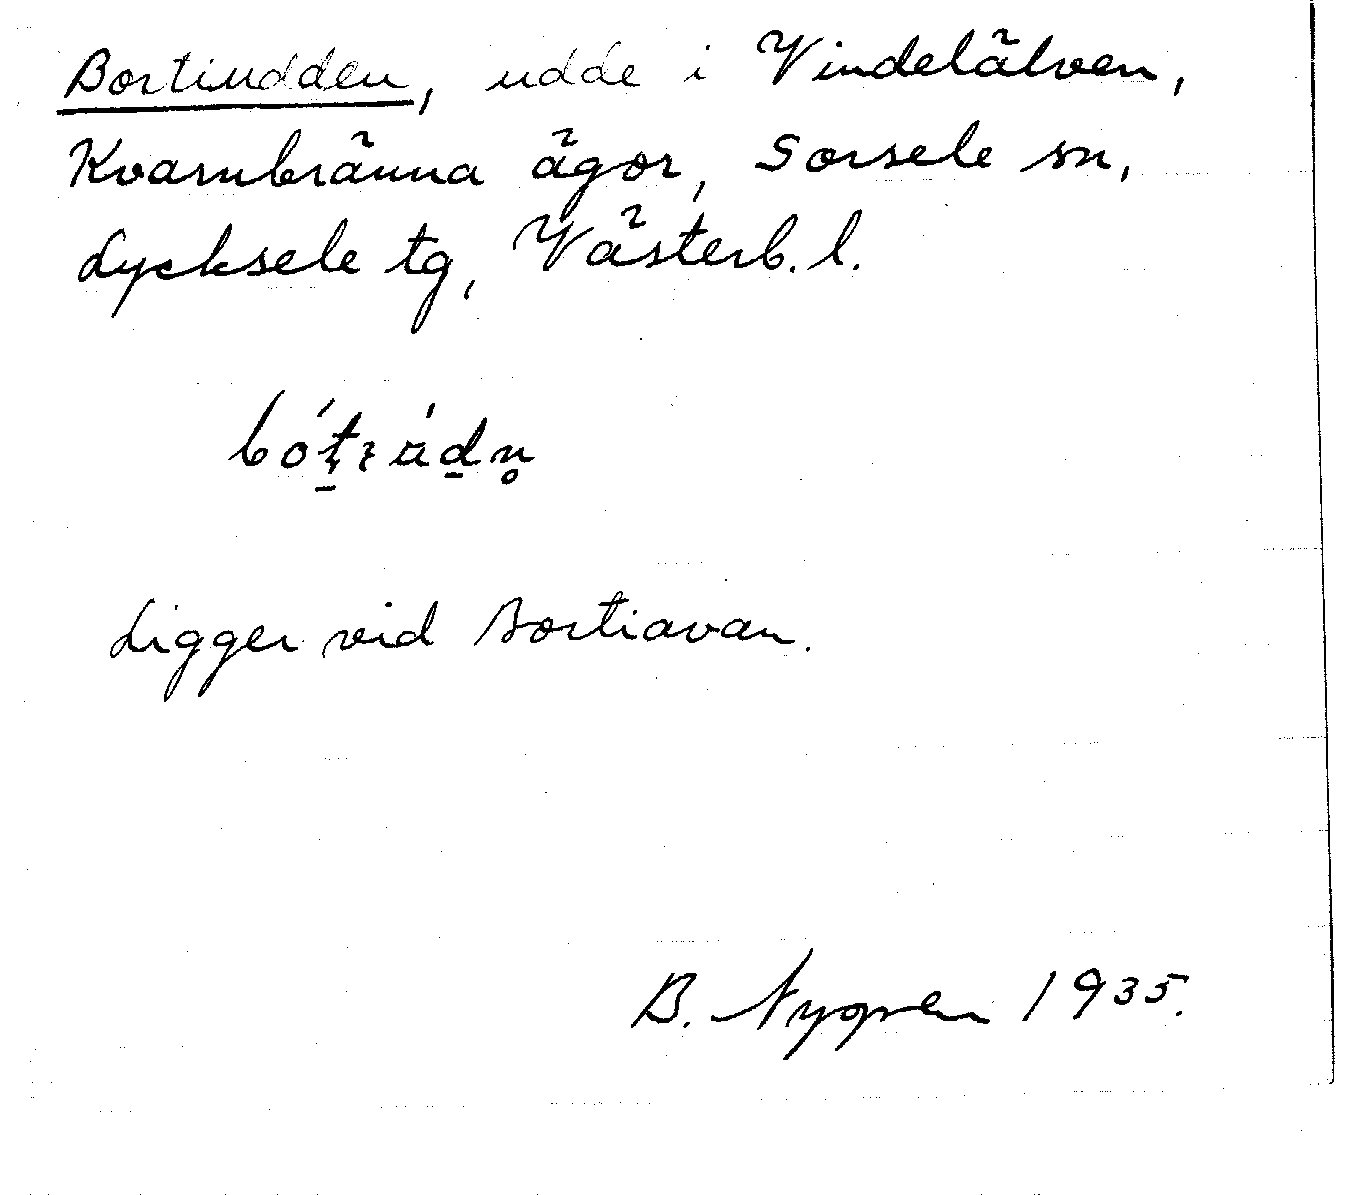 Bortiudden, udde i Vindelälven,
Kvarnbränna ägor, Sorsele sn,
Lycksele tg, Västerb. l.
Ligger vid Bortiavan.
B. Nygren 1935.